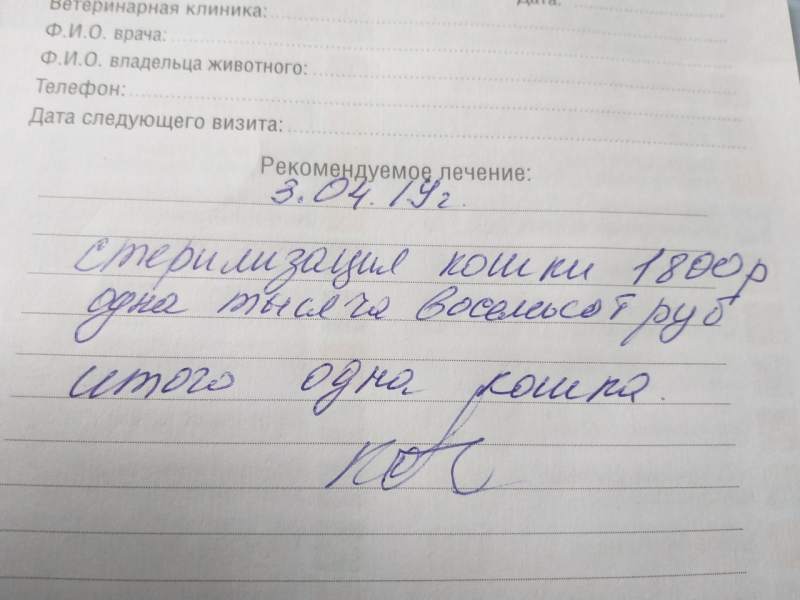 Ветеринарная клиника: Дата:
Ф.И.О. врача:
Ф.И.О. владельца животного:
Телефон:
Дата следующего визита:
Рекомендуемое лечение:
3.04.19г.
стерилизация кошки 1800р
одна тысяча восемьсот руб
итого одна кошка.